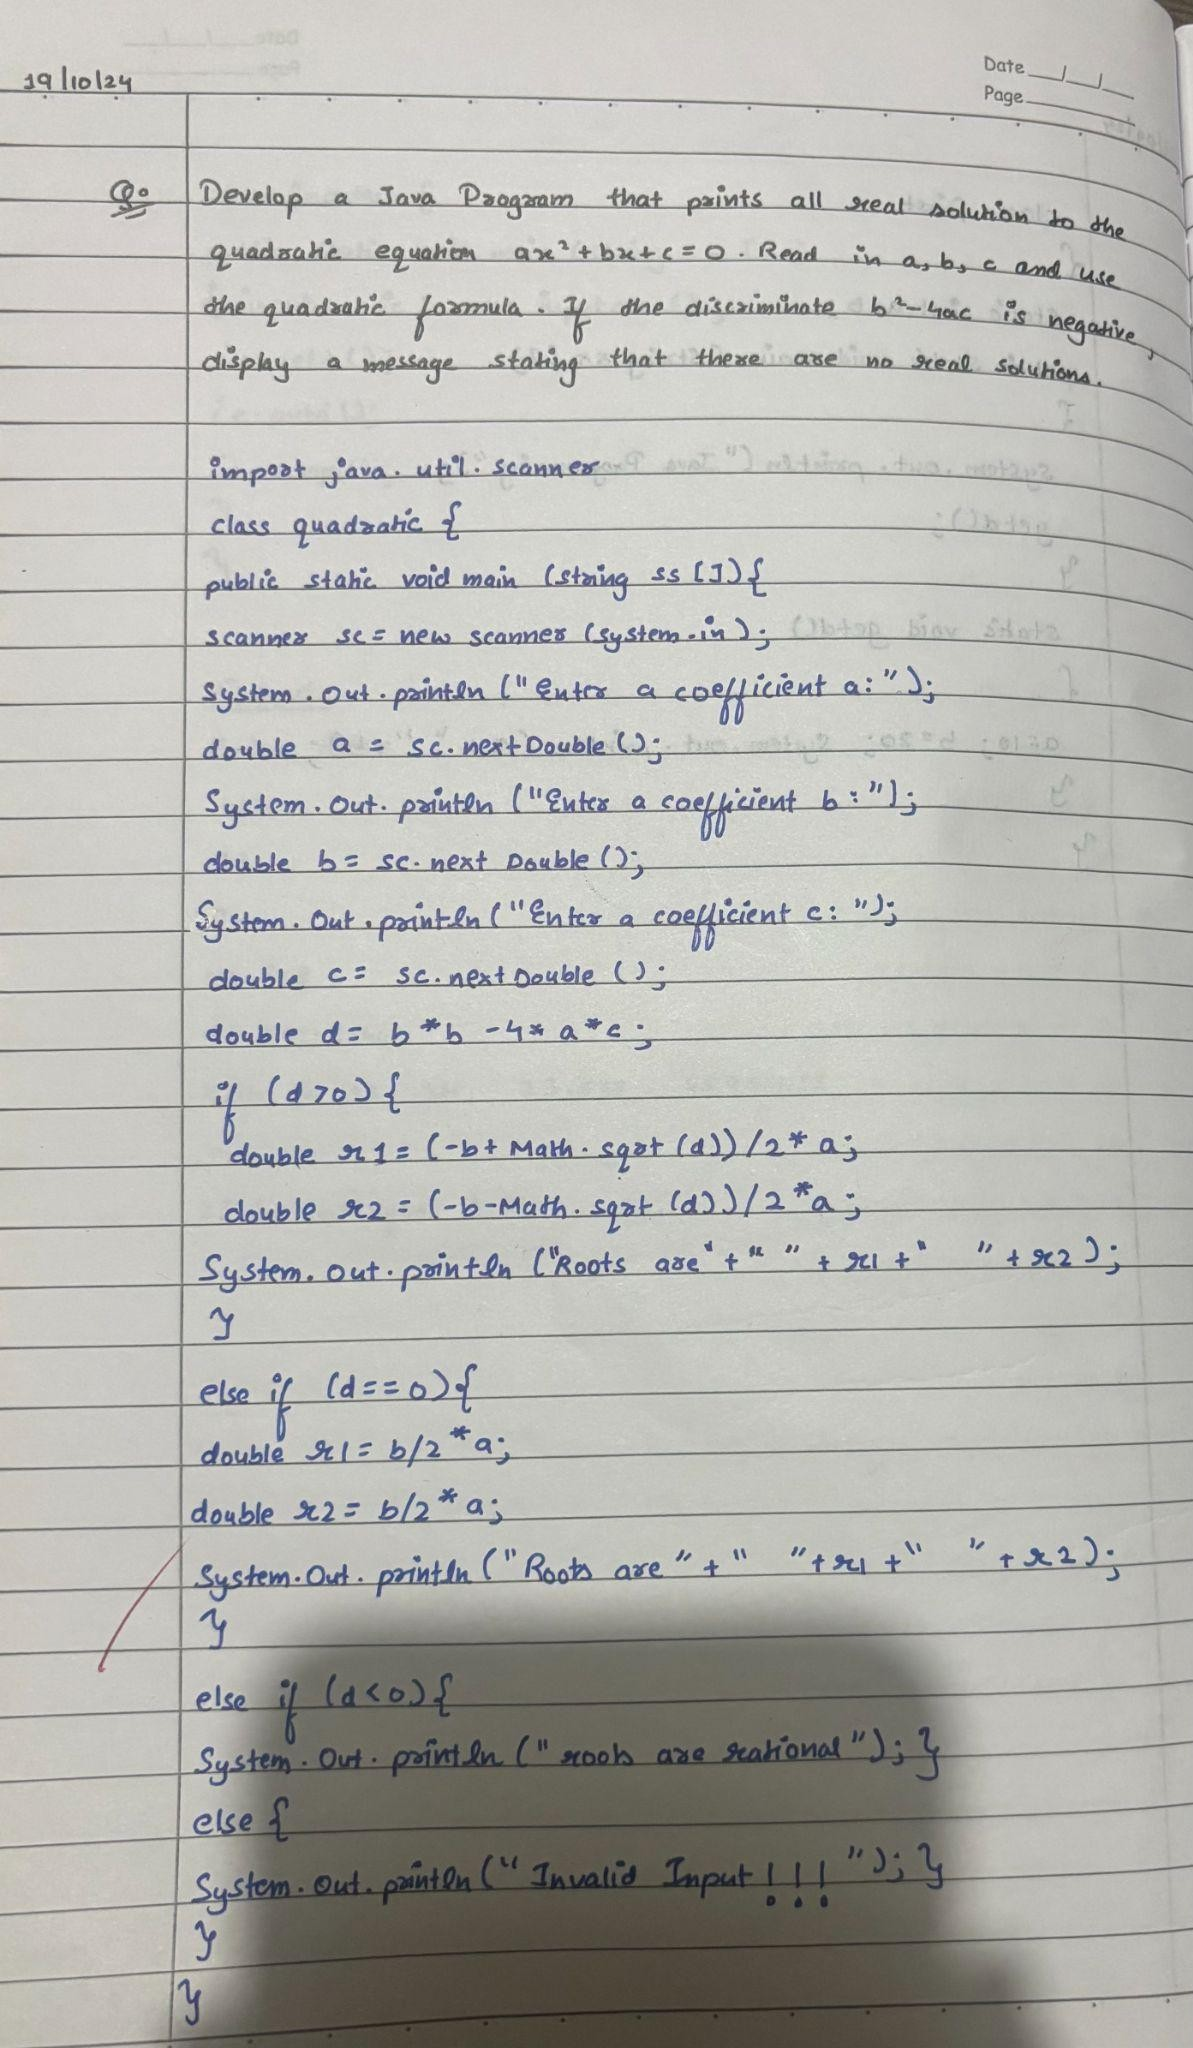 19/10/24
Date
Page
Q. Develop a Java Program that prints all real solution to the
quadratic equation ax²+bx+c=0. Read in a, b, c and use
the quadratic formula. If the discriminate b²-4ac is negative,
display a message stating that there are no real solutions.
import java.util.scanner
class quadratic {
public static void main (string ss []){
scanner sc = new scanner (system.in);
System.out.println ("Enter a coefficient a:");
double a = sc.nextDouble ();
System.out.println ("Enter a coefficient b:");
double b = sc.next Double ();
System.out.println ("Enter a coefficient c:");
double c = sc.nextDouble ();
double d = b*b -4* a*c;
if (d>0) {
double r1 = (-b+ Math.sqrt (d))/2* a;
double r2 = (-b-Math.sqrt (d))/2*a;
System.out.println ("Roots are"+" "+r1+" "+r2);
}
else if (d==0){
double r1= b/2*a;
double r2= b/2*a;
System.out.println ("Roots are"+" "+r1+" "+r2);
}
else if (d<0){
System.out.println ("roots are rational"); }
else {
System.out.println (" Invalid Input !!! "); }
}
}